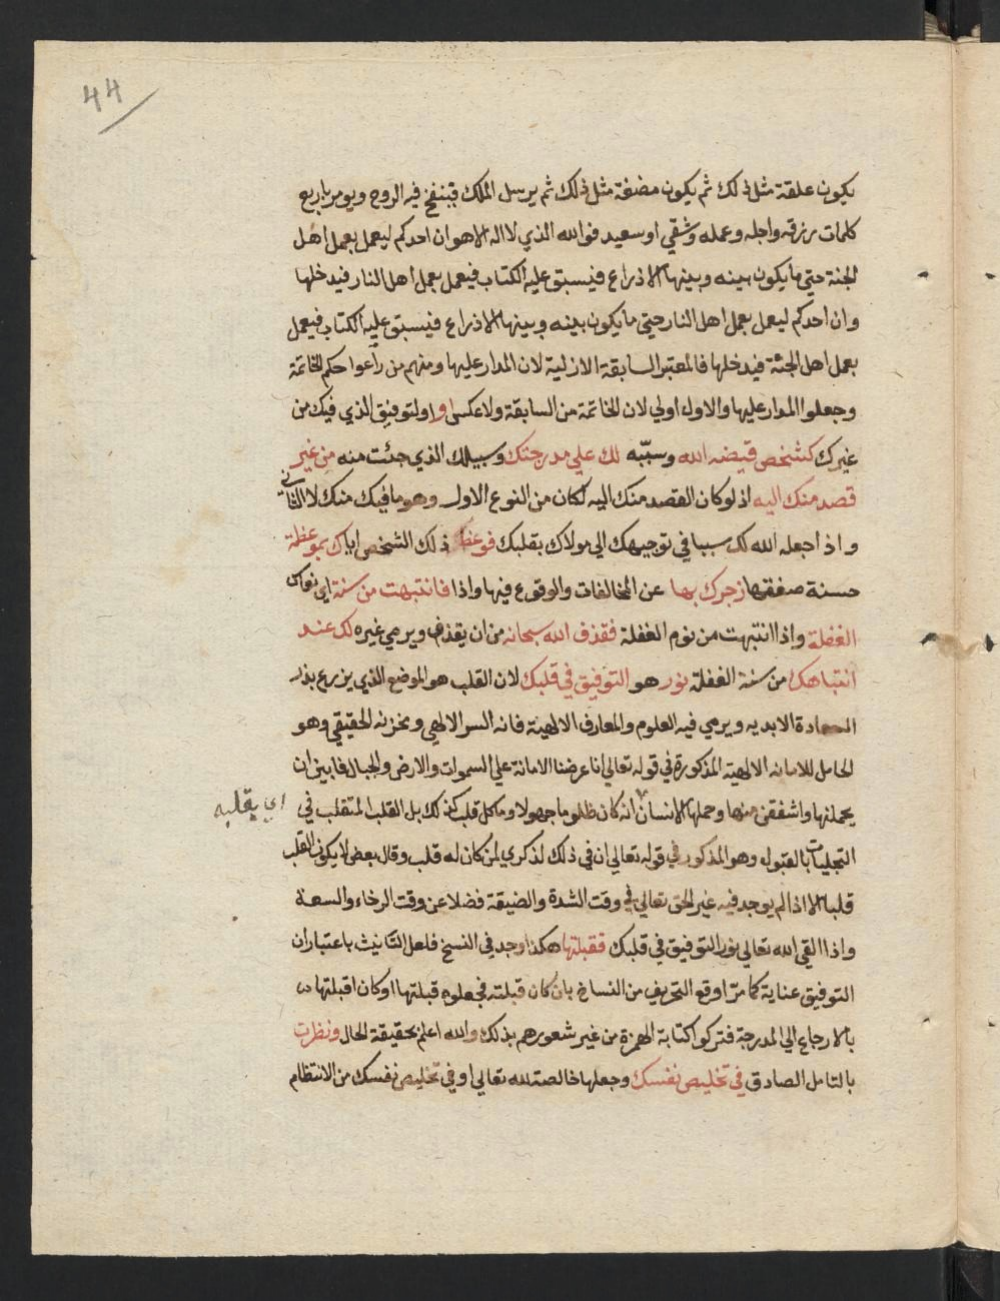 44
يكون علقة مثل ذلك ثم يكون مضغة مثل ذلك ثم يرسل الملك فينفخ فيه الروح ويومر باربع
كلمات برزقه واجله وعمله وشقي او سعيد فوالله الذي لا اله الا هو ان احدكم ليعمل بعمل اهل
الجنة حتي ما يكون بينه وبينها الا ذراع فيسبق عليه الكتاب فيعمل بعمل اهل النار فيدخلها
وان احدكم ليعمل بعمل اهل النار حتي ما يكون بينه وبينها الا ذراع فيسبق عليه الكتاب فيعمل
بعمل اهل الجنة فيدخلها فالمعتبر السابقة الازلية لان المدار عليها ومنهم من راعوا حكم الخاتمة
وجعلوا المدار عليها والاول اولي لان الخاتمة من السابقة ولا عكس او التوفيق الذي فيك من
غيرك كشخص قيضه الله وسببه لك علي مدرجتك وسبيلك الذي جئت منه من غير
قصد منك اليه اذ لو كان القصد منك اليه لكان من النوع الاول وهو ما فيك منك لا الثاني
واذا جعله الله لك سببا في توجيهك الي مولاك بقلبك فوعظ ذلك الشخص اياك بموعظة
حسنة صفقها زجرك بها عن المخالفات والوقوع فيها واذا فانتبهت من سنة اي نعاس
الغفلة واذا انتبهت من نوم الغفلة فقذف الله سبحانه من ان يقذف ويرمي غيره لك عند
انتباهك من سنة الغفلة نور هو التوفيق في قلبك لان القلب هو الموضع الذي يزرع بذر
السعادة الابديه ويرمي فيه العلوم والمعارف الالهية فانه السر الالهي ومخزنه الحقيقي وهو
الحامل للامانه الالهية المذكورة في قوله تعالي انا عرضنا الامانة علي السموات والارض والجبال فابين ان
يحملنها واشفقن منها وحملها الانسان انه كان ظلوما جهولا وما كل قلب كذلك بل القلب المتقلب في
اي يقلبه
التجليات بالقبول وهو المذكور في قوله تعالي ان في ذلك لذكري لمن كان له قلب وقال بعض لا يكون القلب
قلبا الا اذا لم يوجد فيه غير الحق تعالي في وقت الشدة والضيقة فضلا عن وقت الرخاء والسعة
واذا القي الله تعالي نور التوفيق في قلبك فقبلتها هكذا وجد في النسخ فلعل التانيث باعتبار ان
التوفيق عناية كما مرّ او قع التحريف من النساخ بان كان قبلته فجعلوه قبلتها او كان اقبلتها
بالارجاع الي المدرجة فتركوا كتابة الهمزة من غير شعورهم بذلك والله اعلم بحقيقة الحال ونظرت
بالتامل الصادق في تخليص نفسك وجعلها خالصة لله تعالي او في تخليص نفسك من الانتظام